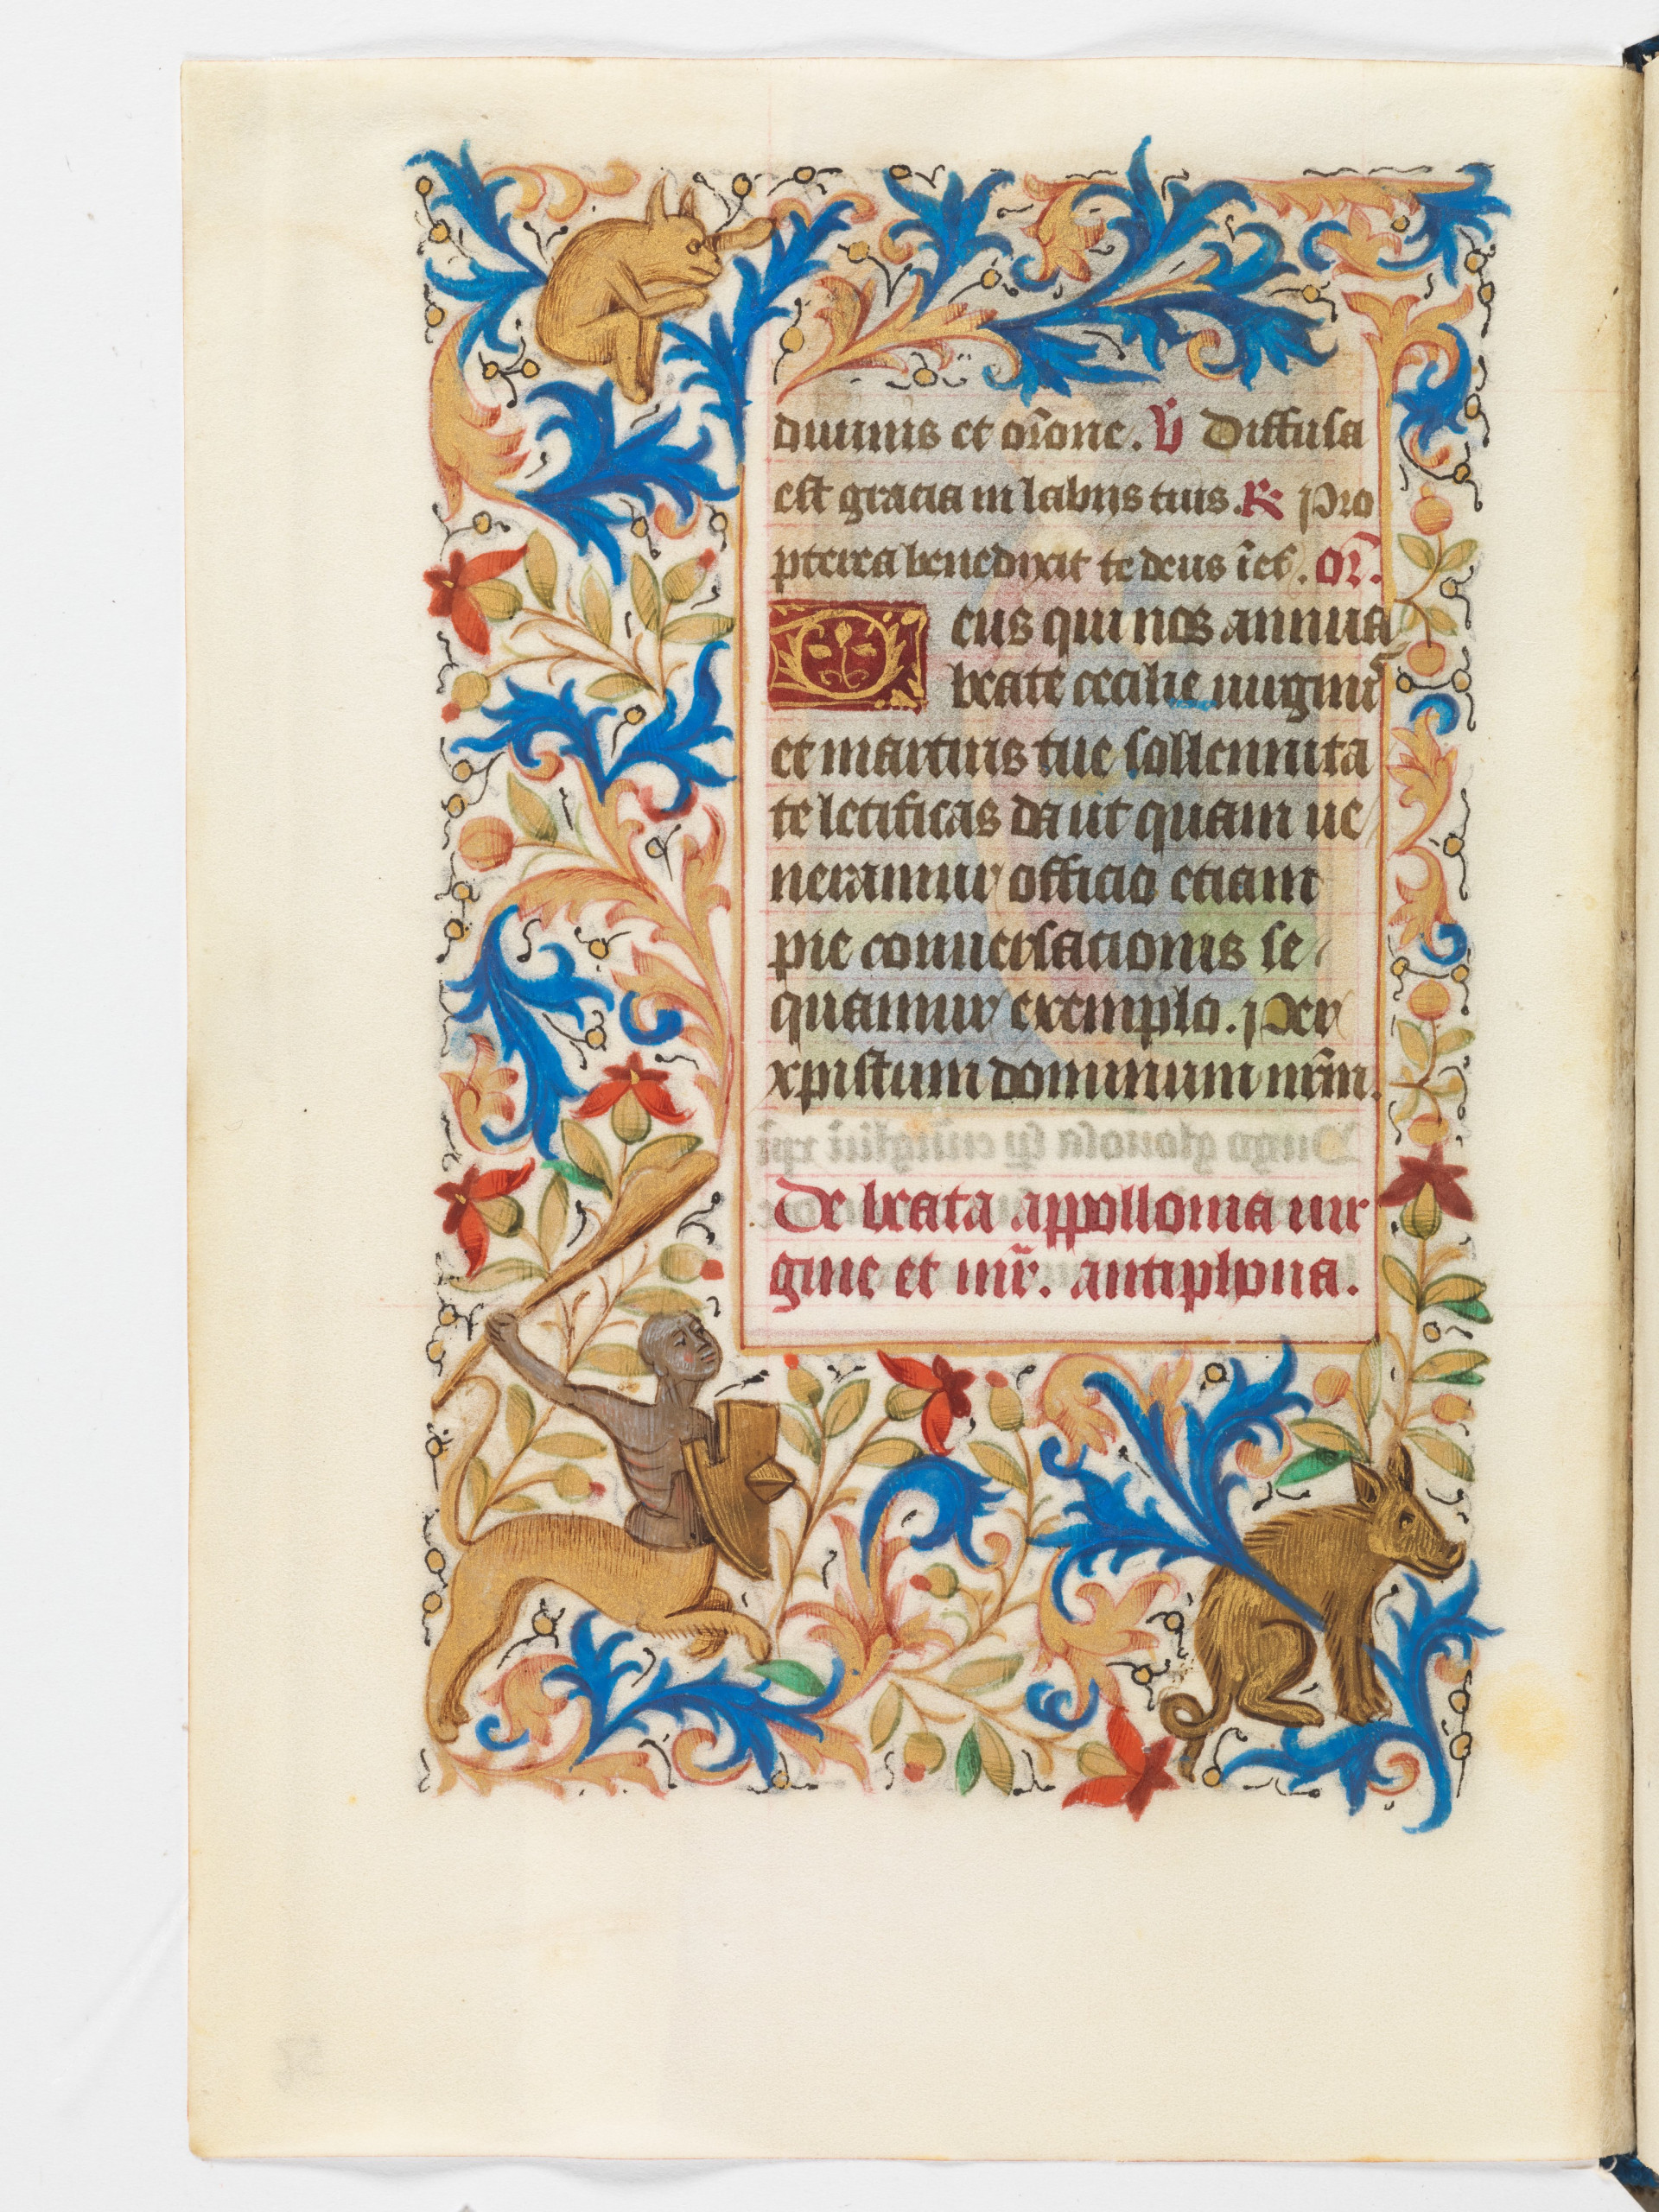 diuinis et or̄one. V̄ Diffusa
est gracia in labijs tuis. R Pro
pterea benedixit te deus ī et̄. Or̄.
Deus qui nos annua
beate cecilie uirginis
et martiris tue sollennita
te letificas da ut quam ue
neramur officio etiam
pie conuersacionis se
quamur exemplo. Per
xpistum dominum nr̄m.
De beata appollonia uir
gine et mr̄. antiphona.